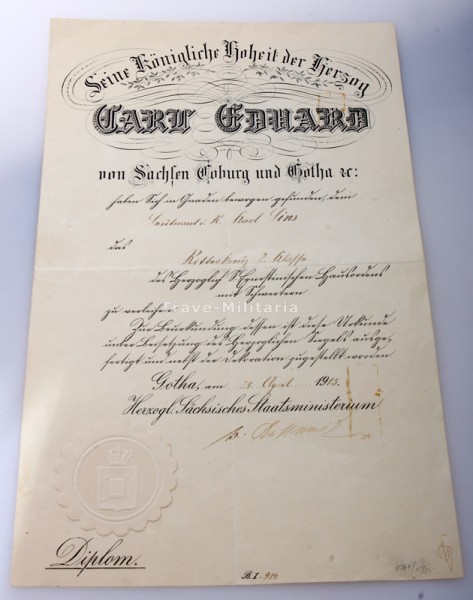 Seine Königliche Hoheit der Herzog
CARL EDUARD
von Sachsen Coburg und Gotha ꝛc:
haben Sich in Gnaden bewogen gefunden, dem
Leutnant d. R. Karl
das
Ritterkreuz 2. Klasse
des Herzoglich S. Ernestinischen Hausordens
mit Schwertern
zu verleihen.
Trave-Militaria
Zur Beurkundung dessen ist diese Urkunde
unter Beisetzung des Herzoglichen Siegels ausge-
fertigt und nebst der Dekoration zugestellt worden
Gotha, am 13. April 1915.
Herzogl. Sächsisches Staatsministerium
Diplom.